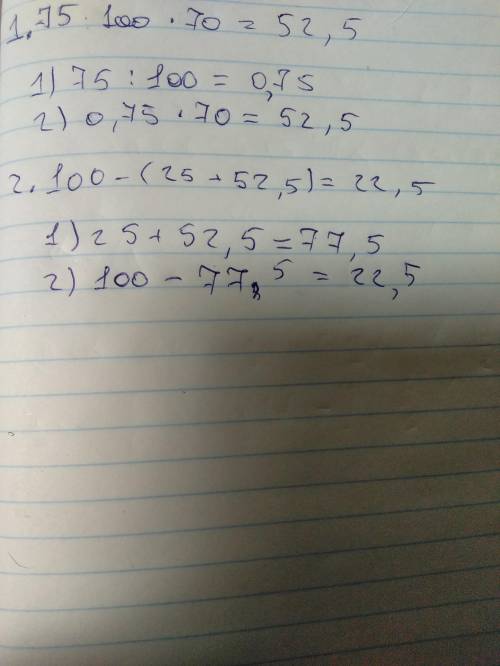 1. 75 100 · 70 = 52,5
1) 75 : 100 = 0,75
2) 0,75 · 70 = 52,5
2. 100 - (25 + 52,5) = 22,5
1) 25 + 52,5 = 77,5
2) 100 - 77,5 = 22,5